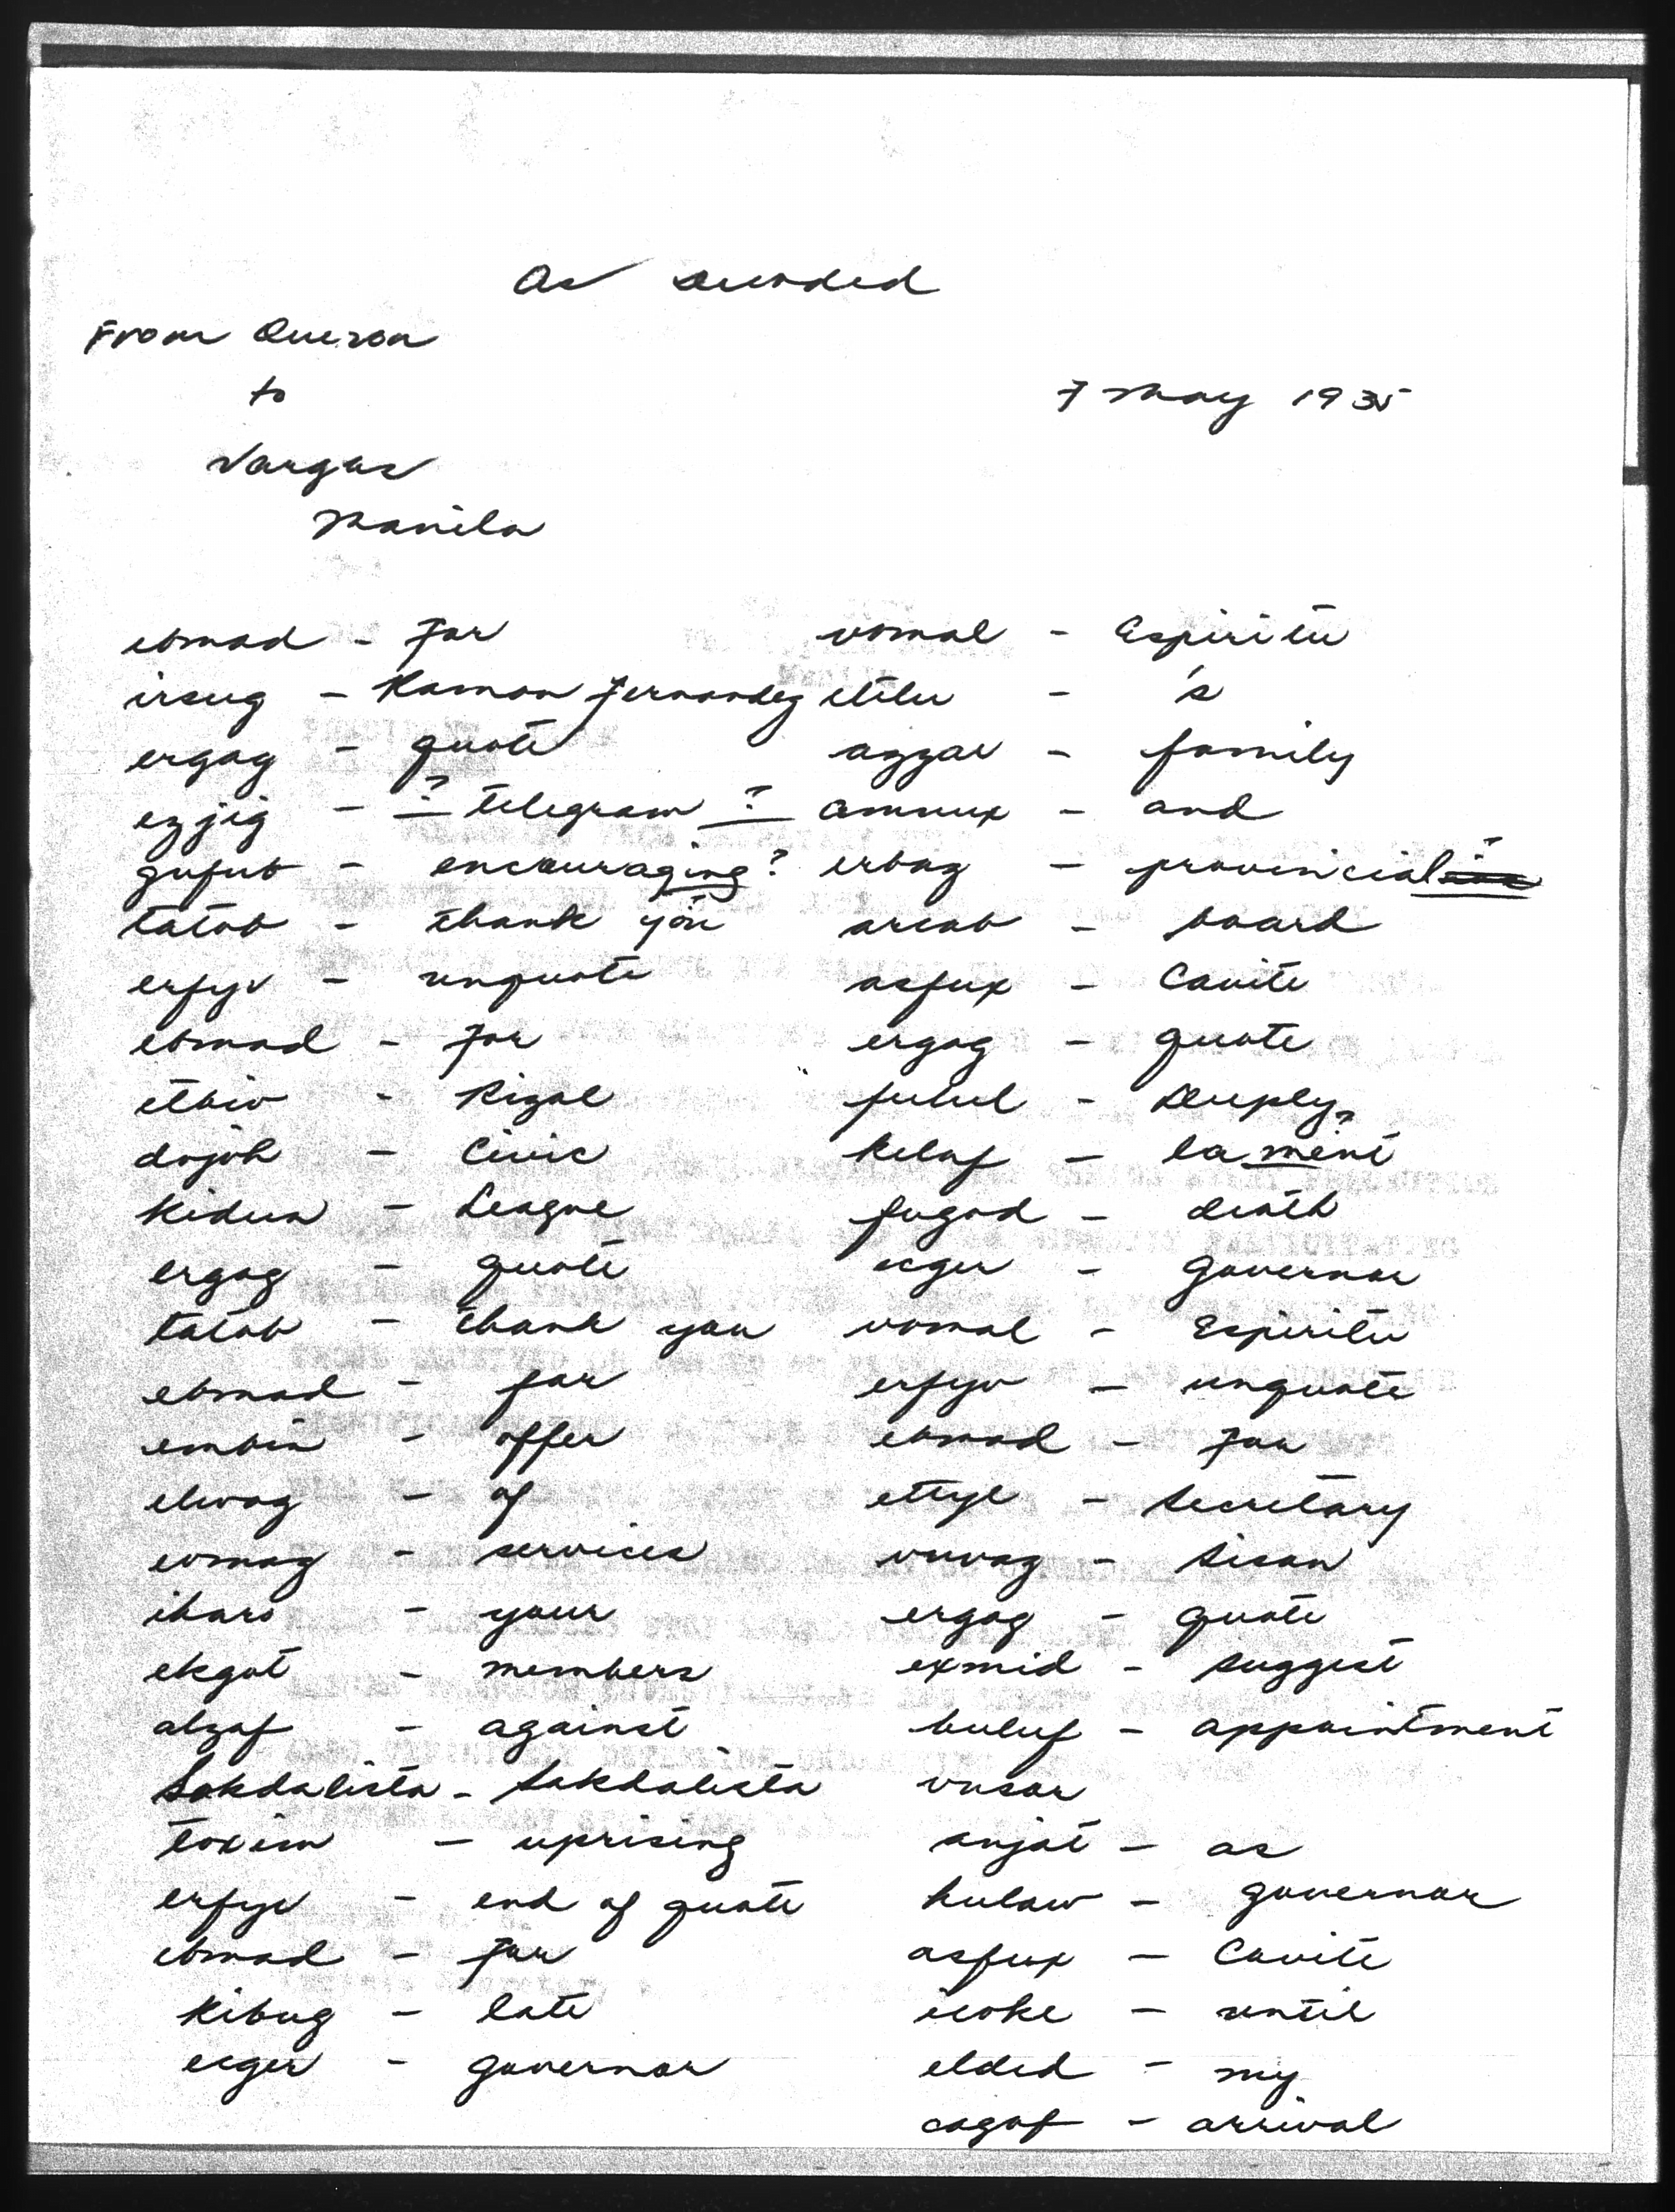 As decoded
From Quezon
to
7 May 1935
Vargas
Manila
ebmad - For
irsug - Ramon Fernandez
ergag - quote
ezjig - ? telegram ?
gufub - encouraging ?
tatob - thank you
erfyv - unquote
ebmad - For
etbiv - Rizal
dojoh - Civic
kidun - League
ergag - quote
tatob - thank you
ebmad - for
embin - offer
elwag - of
evmag - services
iharo - your
ekgat - members
alzaf - against
Sakdalista - Sakdalista
toxim - uprising
erfyv - end of quote
ebmad - For
kibug - late
ecger - governor
vomal - Espiritu
etilu - 's
azzal - family
amnux - and
erbaz - provincial ?
arcab - board
asfux - Cavite
ergag - quote
fulul - Deeply
kelaf - lament ?
fugad - death
ecger - Governor
vomal - Espiritu
erfyv - unquote
ebmad - For
ettyl - Secretary
vuvag - Sison
ergag - quote
exmid - suggest
buluf - appointment
vusar
anjat - as
hulaw - governor
asfux - Cavite
icoke - until
elded - my
cagaf - arrival